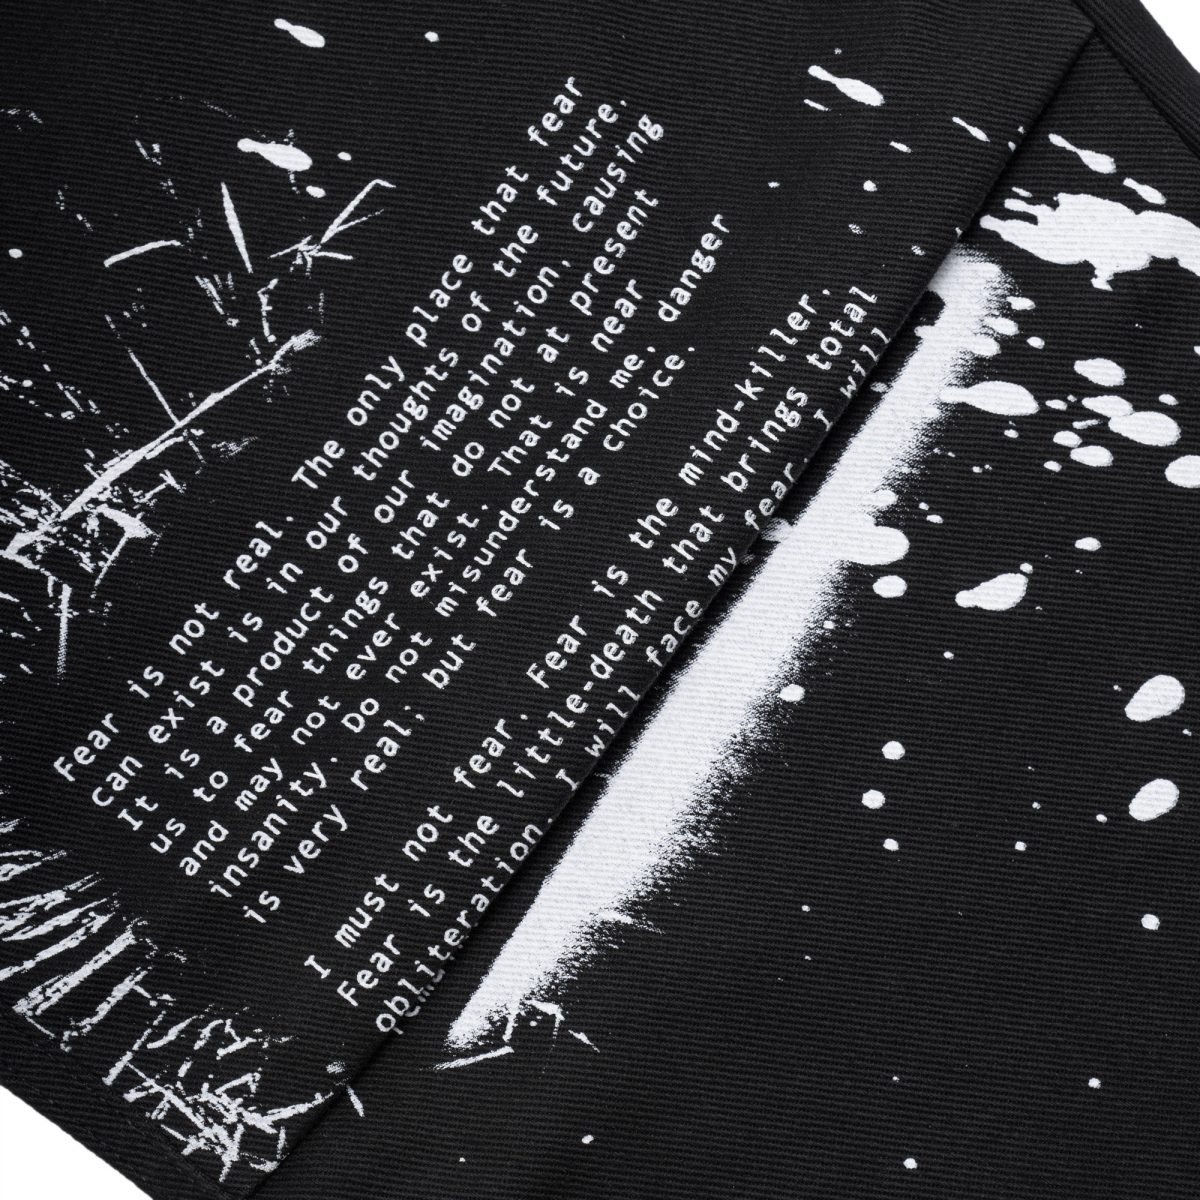 Fear is not real. The only place that fear
can exist is in our thoughts of the future.
It is a product of our imagination, causing
us to fear things that do not at present
and may not ever exist. That is near
insanity. Do not misunderstand me, danger
is very real; but fear is a choice.
I must not fear. Fear is the mind-killer.
Fear is the little-death that brings total
obliteration. I will face my fear. I will